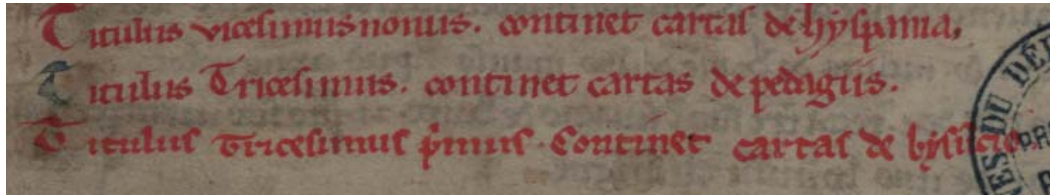 Titulus vicesimus nonus. continet cartas de hyspania.
Titulus Tricesimus. continet cartas de pedagiis.
Titulus Tricesimus p̍mus. Continet cartas de
ES DU DÉ